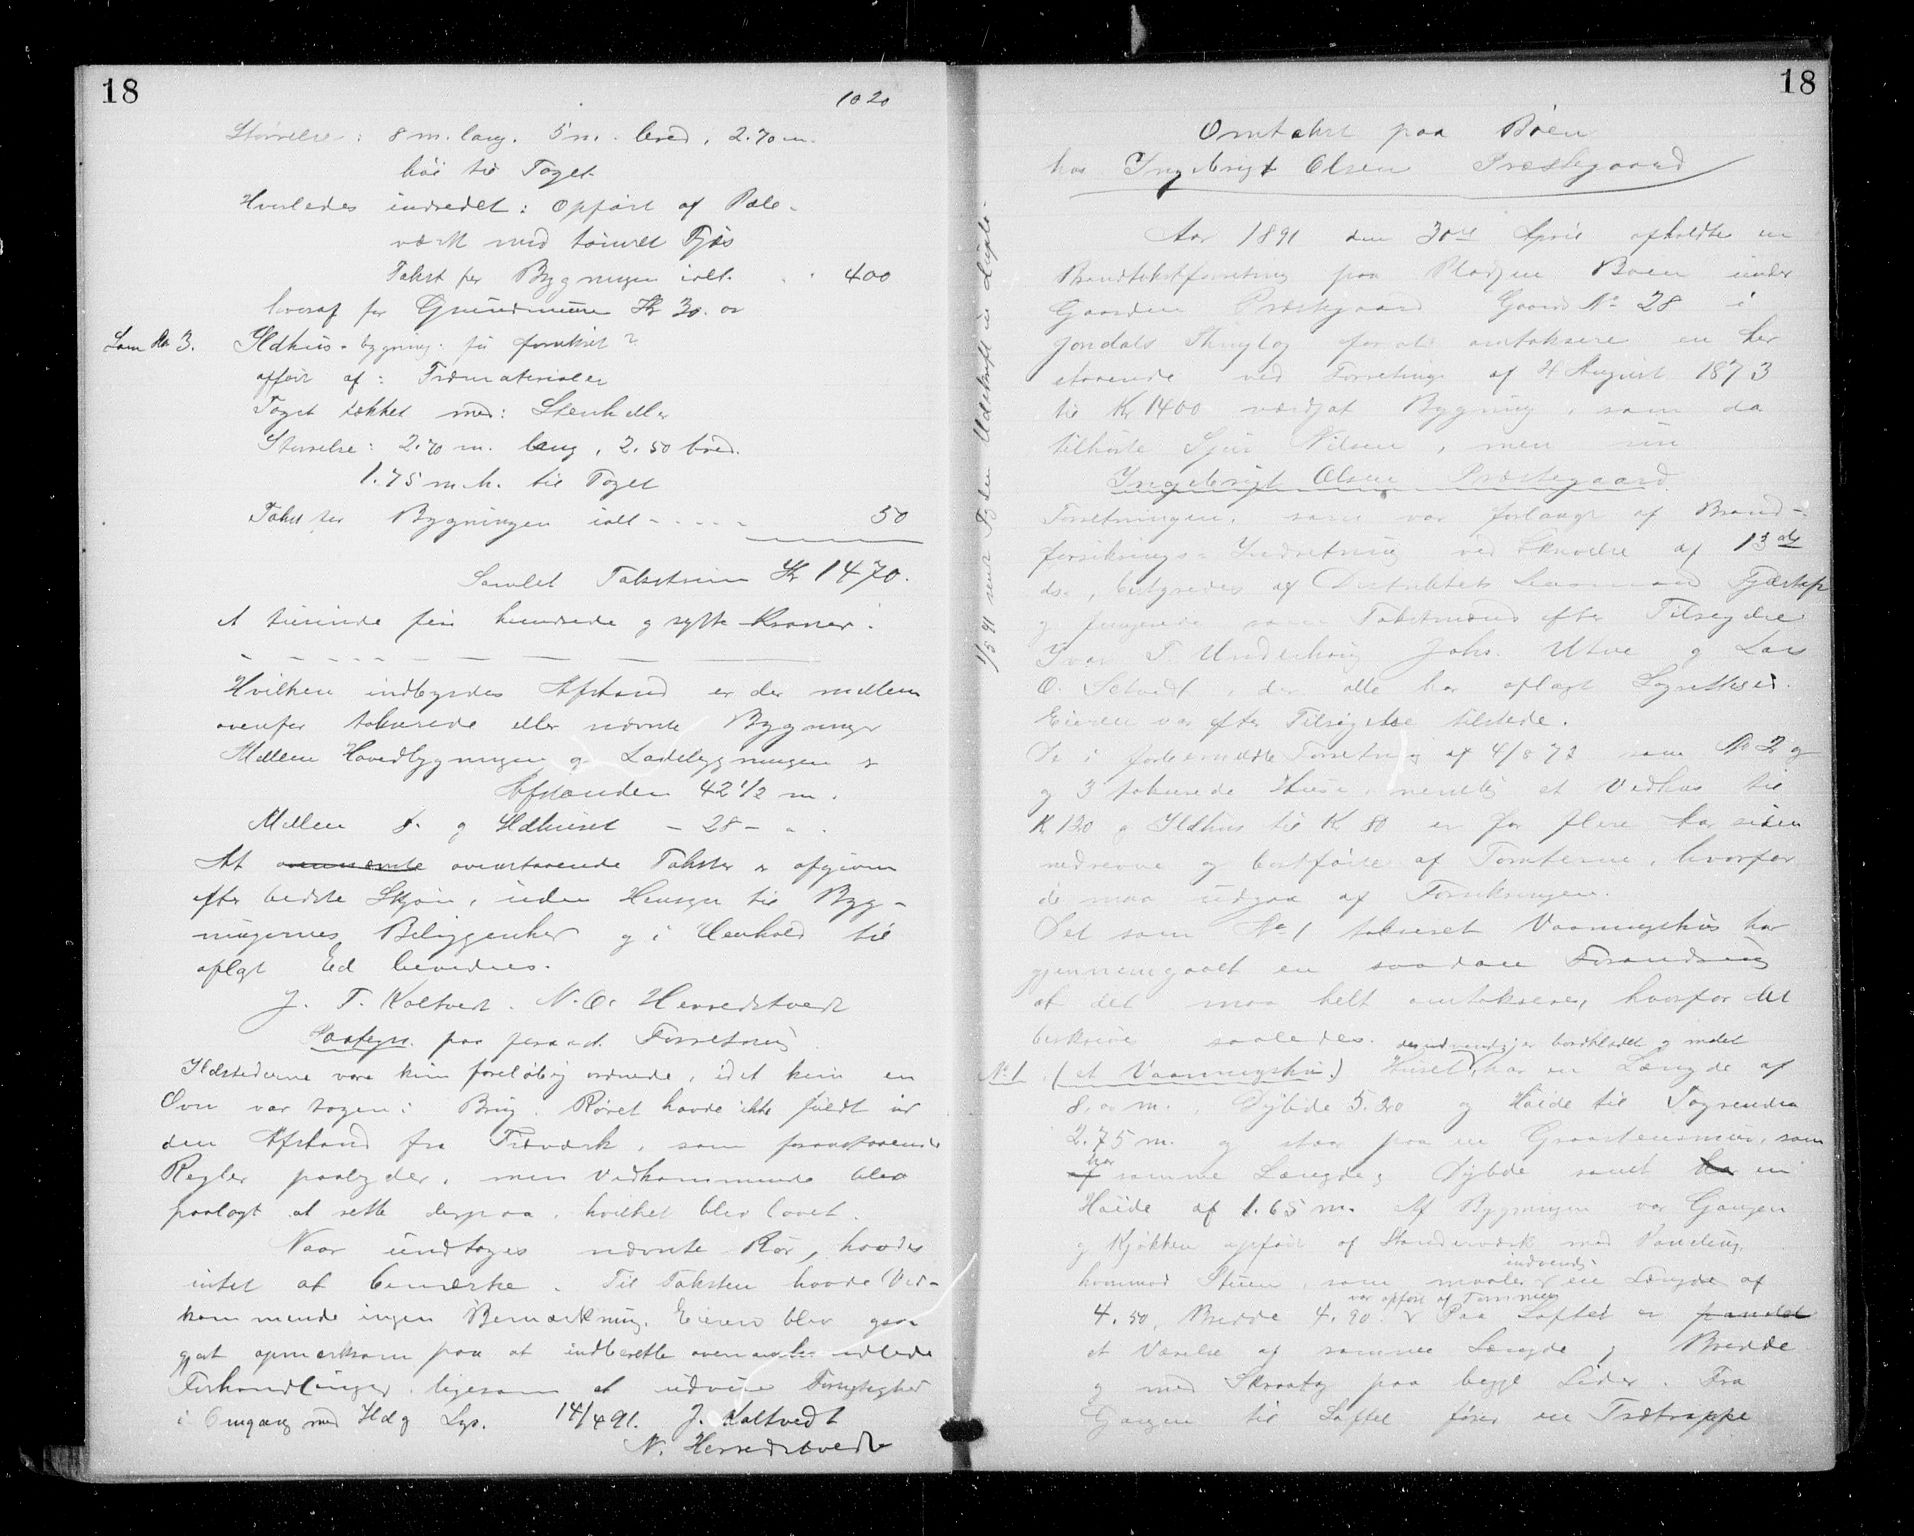 18
1020
Størrelse: 8 m. lang. 5 m. bred, 2.70 m.
høi til Taget
Hvorledes indredet: Opført af Pæle-
værk med tømret Fjøs
Takst for Bygningen ialt. 400
hvoraf for Grundmuren Kr 30.00
Som No 3. Ildhus-bygning. før forsikret?
opført af: Træmaterialer
Taget tækket med: Stenheller
Størrelse: 2.70 m. lang, 2.50 bred.
1.75 m. h. til Taget
Takst for Bygningen ialt - - - - - 50
Samlet Takstsum Kr 1470.
et tusinde fire hundrede og sytti Kroner.
Hvilken indbyrdes Afstand er der mellem
ovenfor takserede eller nævnte Bygninger
Mellem Hovedbygningen og Ladebygningen er
Afstanden 42 1/2 m.
Mellem d. og Ildhuset - 28 - "
At ovennævnte ovenstaaende Takster er afgivne
efter bedste Skjøn, uden Hensyn til Byg-
ningernes Beliggenhed og i Henhold til
aflagt Ed bevidnes.
J. T. Koltvedt. N. O. Herredstvedt
Paategn. paa foranst. Forretning
Ildstederne vare kun foreløbig ordnede, idet kun en
Ovn var tagen i Brug. Røret havde ikke fuldt ud
den Afstand fra Træværk, som foranstaaende
Regler paabyder, men Vedkommende blev
paalagt at rette derpaa, hvilket blev lovet.
Naar undtages nævnte Rør, havdes
intet at bemærke. Til Taksten havde Ved-
kommende ingen Bemærkning. Eieren blev gjen
gjort opmerksom paa at indberette ovenanførte
Forhandlinger, ligesom at udvise Forsigtighed
i Omgang med Ild og Lys. 14/4 91. J. Koltvedt
N. Herredstvedt
18
Omtakst paa Bøen
hos Ingebrigt Olsen Præstegaard
Aar 1891 den 30te April afholdtes en
Brandtakstforretning paa Pladsen Bøen under
Gaarden Præstegaard Gaards No 28 i
Jondals Thinglag for at omtaksere en her
staaende ved Forretning af 4 August 1873
til Kr 1400 værdsat Bygning, som da
tilhørte Sjur Nilsen, men nu
Ingebrigt Olsen Præstegaard
Forretningen, som var forlangt af Brand-
forsikrings-Indretning ved Skrivelse af 13de
ds., bestyredes af Distriktets Lensmand
og fungerede som Takstmænd efter Tilsigelse
Ivar T. Underhaug Johs. Utne og Lars
O. Selvedt, der alle har aflagt Lagrettesed.
Eieren var efter Tilsigelse tilstede.
De i forbemeldte Forretning af 4/8 73 som No 2 og
og 3 takserede Huse, nemlig et Vedhus til
Kr 120 og Ildhus til Kr 80 er for flere Aar siden
nedrevne og bortførte af Tomterne, hvorfor
de maa udgaa af Forsikringen.
Det som No 1 takseret Vaaningshus har
gjennemgaaet en saadan Forandring
at det maa helt omtakseres, hvorfor det
beskrives saaledes.
der udvendig er bordklædet og malet
No 1. (et Vaaningshus.) Huset, har en Længde af
8.00 m., Dybde 5.20 og Høide til Tagrenden
2.75 m. og staar paa en Graastensmur, som
har
af samme Længde og Dybde samt har en
Høide af 1.65 m. Af Bygningen var Gangen
og Kjøkken opført af Standerværk med Paneling
indvendi
hvormod Stuen, som maaler en Længde af
var opført af Tømmer
4.50, Bredde 4.90. Paa Loftet er panelet
et Værelse af samme Længde og Bredde
og med Skraatag paa begge Sider. Fra
Gangen til Loftet fører en Trætrappe
1/5 91 sendt Udskrift